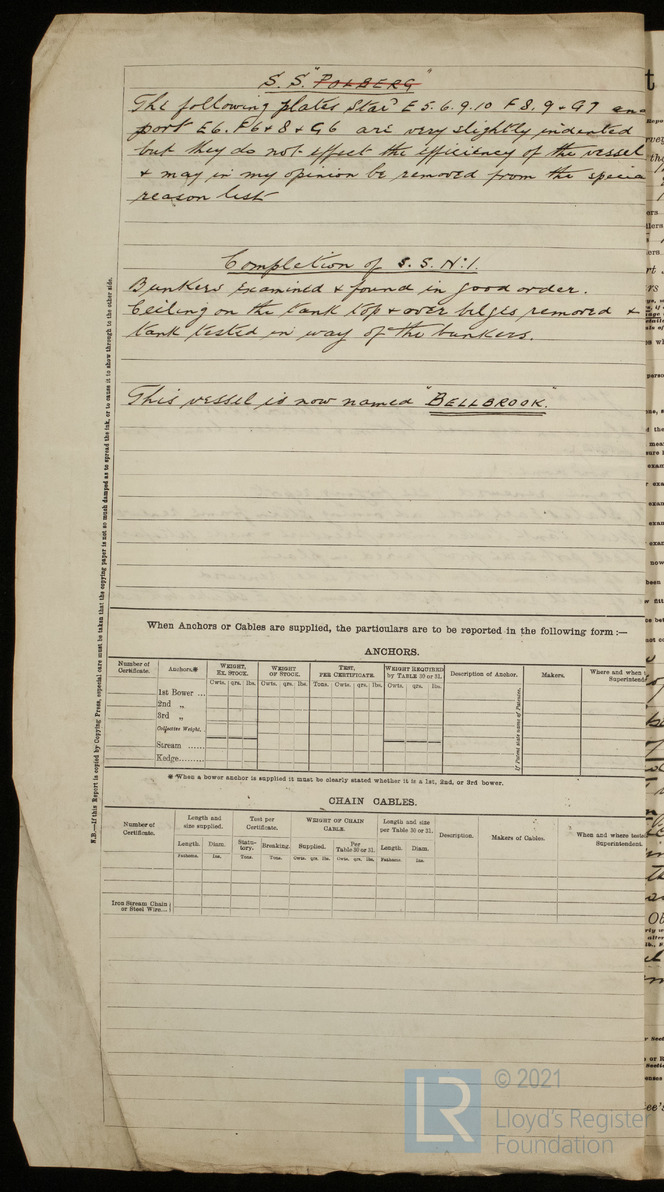 S.S. "POLBERG"
The following plates Starᵈ E5.6.9.10 F8.9 & G7 and
port E6. F6 & 8 & G6 are very slightly indented
but they do not effect the efficiency of the vessel
& may in my opinion be removed from the specia
reason list
Completion of S.S. No 1.
Bunkers examined & found in good order.
Ceiling on the tank top & over bilges removed &
tank tested in way of the bunkers.
This vessel is now named "BELLBROOK."
N.B.—If this Report is copied by Copying Press, especial care must be taken that the copying paper is not so much damped as to spread the ink, or to cause it to show through to the other side.
When Anchors or Cables are supplied, the particulars are to be reported in the following form :—
ANCHORS.
Number of Certificate. Anchors.* WEIGHT, EX. STOCK. WEIGHT OF STOCK. TEST, PER CERTIFICATE. WEIGHT REQUIRED by TABLE 30 or 31. Description of Anchor. Makers. Where and when Superintend
Cwts. qrs. lbs. Cwts. qrs. lbs. Tons. Cwts. qrs. lbs. Cwts. qrs. lbs.
1st Bower ...
2nd „
3rd „
Collective Weight.
Stream ......
Kedge.........
If Patent state name of Patentee.
* When a bower anchor is supplied it must be clearly stated whether it is a 1st, 2nd, or 3rd bower.
CHAIN CABLES.
Number of Certificate. Length and size supplied. Test per Certificate. WEIGHT OF CHAIN CABLE. Length and size per Table 30 or 31. Description. Makers of Cables. When and where tested Superintendent.
Length. Diam. Statutory. Breaking. Supplied. Per Table 30 or 31. Length. Diam.
Fathoms. Ins. Tons. Tons. Cwts. qrs. lbs. Cwts. qrs. lbs. Fathoms. Ins.
Iron Stream Chain
or Steel Wire...
LR
© 2021
Lloyd's Register
Foundation